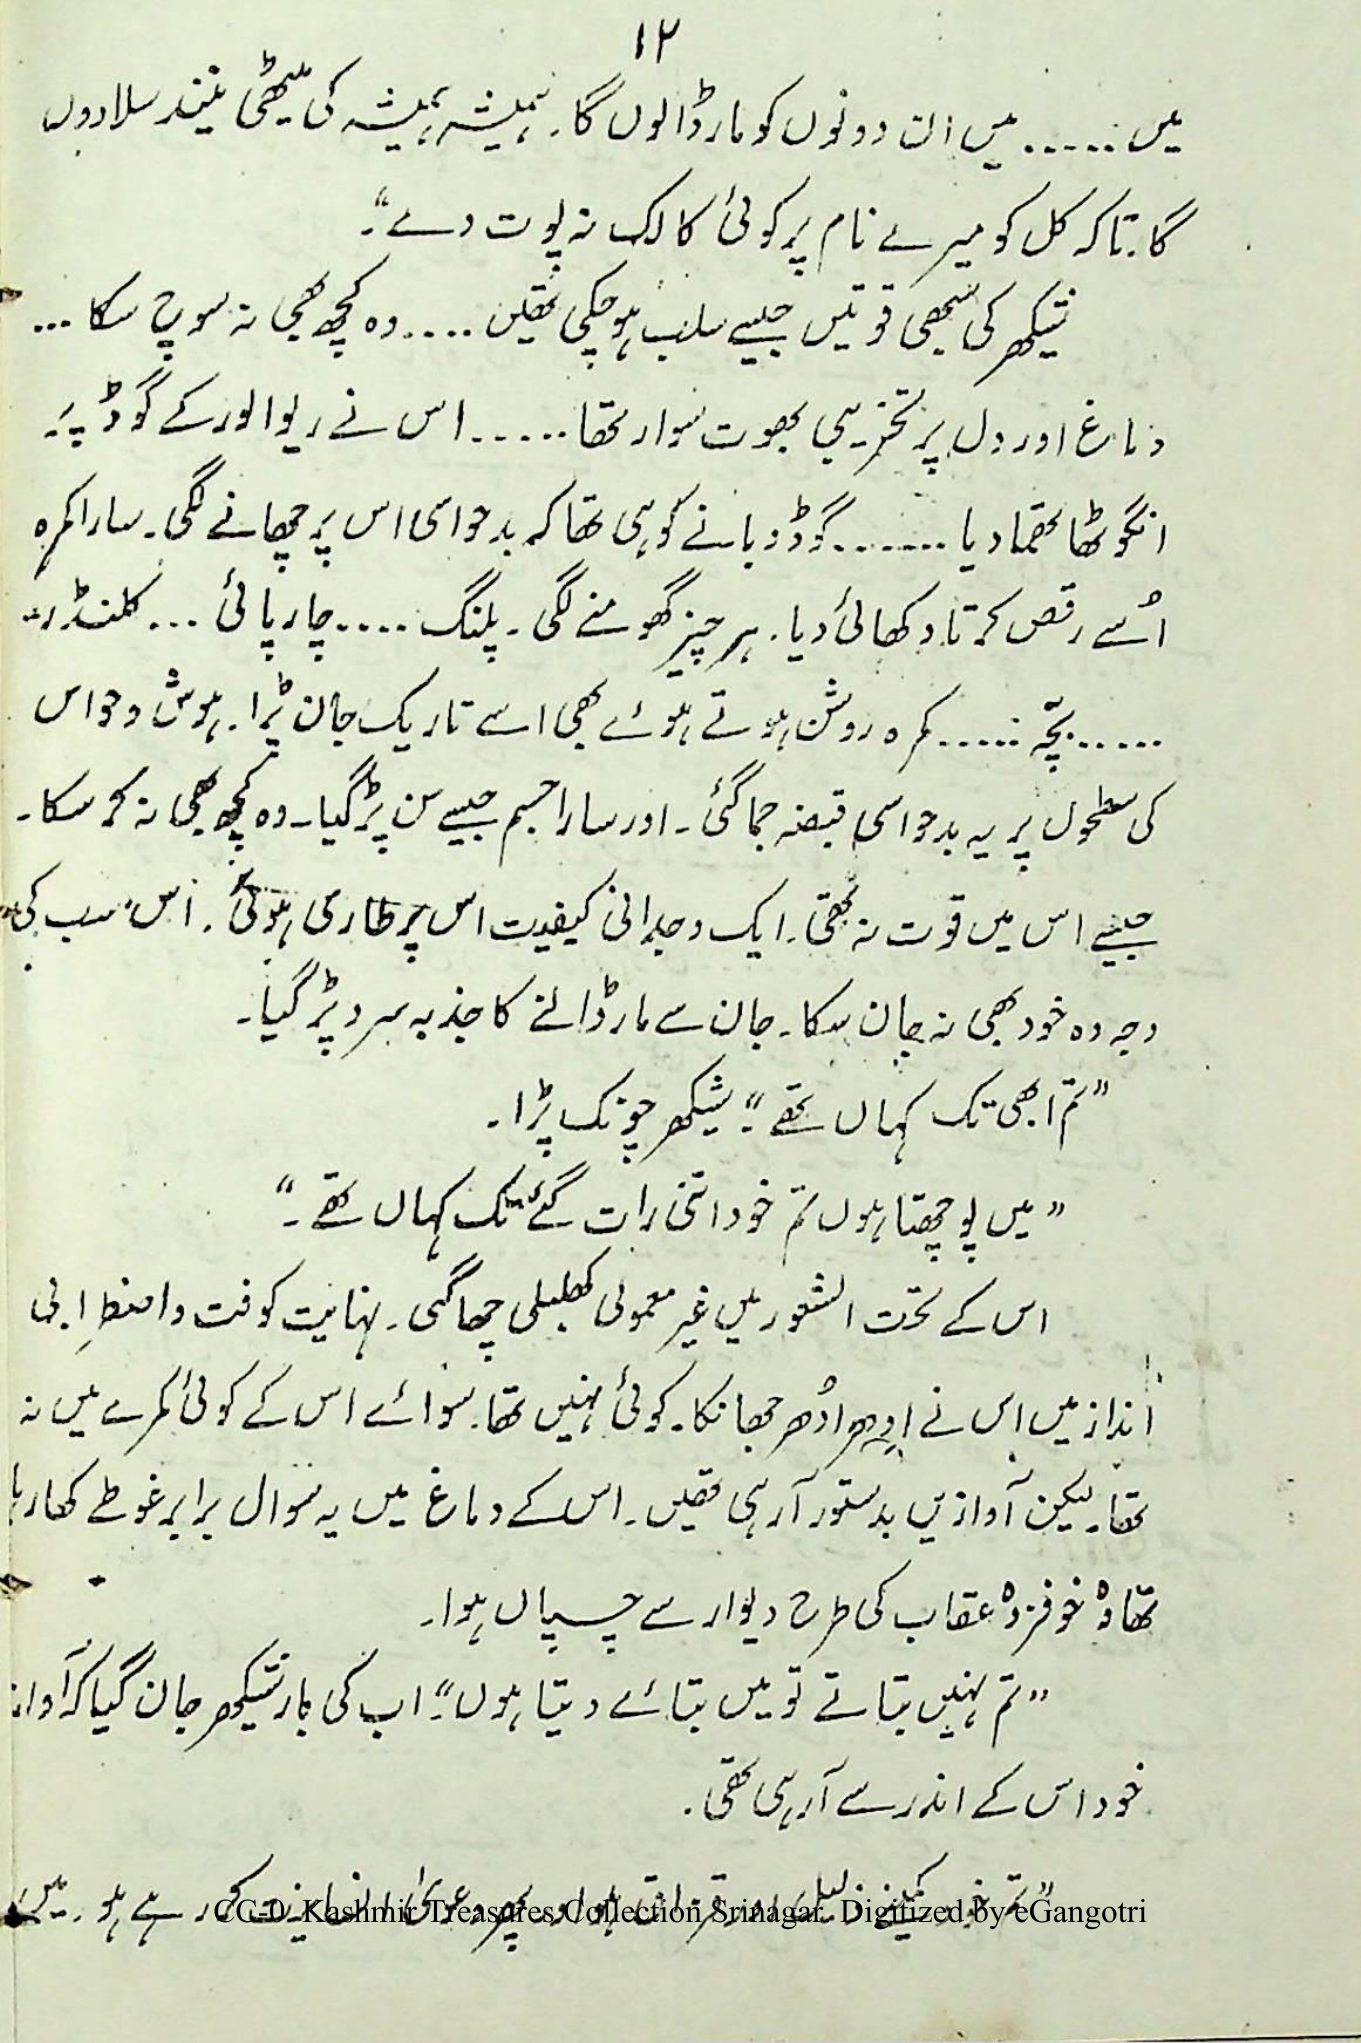 ۱۲
میں ...... میں ان دونوں کو مار ڈالوں گا۔ ہمیشہ ہمیشہ کی میٹھی نیند سلا دوں
گا۔ تاکہ کل کو میرے نام پر کوئی کالک نہ پوت دے“۔
شیکھر کی سبھی قوتیں جیسے سلب ہو چکی تھیں .... وہ کچھ بھی نہ سوچ سکا ...
دماغ اور دل پر تخریبی بھوت سوار تھا...... اس نے ریوالور کے گوڈ پر
انگوٹھا تھما دیا ....... گوڈ دبانے کو ہی تھا کہ بدحواسی اس پر چھانے لگی۔ سارا کمرہ
اُسے رقص کرتا دکھائی دیا۔ ہر چیز گھومنے لگی۔ پلنگ .... چارپائی ... کلنڈر..
..... بچّہ ..... کمرہ روشن ہوتے ہوئے بھی اسے تاریک جان پڑا۔ ہوش و حواس
کی سطحوں پر یہ بدحواسی قبضہ جما گئی۔ اور سارا جسم جیسے سن پڑ گیا۔ وہ کچھ بھی نہ کر سکا۔
جیسے اس میں قوت نہ تھی۔ ایک وجدانی کیفیت اس پر طاری ہوئی۔ اس سب کی
وجہ وہ خود بھی نہ جان سکا۔ جان سے مار ڈالنے کا جذبہ سرد پڑ گیا۔
”تم ابھی تک کہاں تھے“۔ شیکھر چونک پڑا۔
”میں پوچھتا ہوں تم خود اتنی رات گئے تک کہاں تھے۔“
اس کے تحت الشعور میں غیر معمولی کھلبلی چھا گئی۔ نہایت کوفت و اضطرابی
انداز میں اس نے اِدھر اُدھر جھانکا۔ کوئی نہیں تھا۔ سوائے اس کے کوئی کمرے میں نہ
تھا۔ لیکن آوازیں بدستور آ رہی تھیں۔ اس کے دماغ میں یہ سوال برابر غوطے کھا رہا
تھا وہ خوفزدہ عقاب کی طرح دیوار سے چسپاں ہوا۔
”تم نہیں بتاتے تو میں بتائے دیتا ہوں“۔ اب کی بار شیکھر جان گیا کہ آواز
خود اس کے اندر سے آ رہی تھی۔
”تم کمینے ہو اور پھر کر رہے ہو۔ میں
CC-0. Kashmir Treasures Collection Srinagar. Digitized by eGangotri